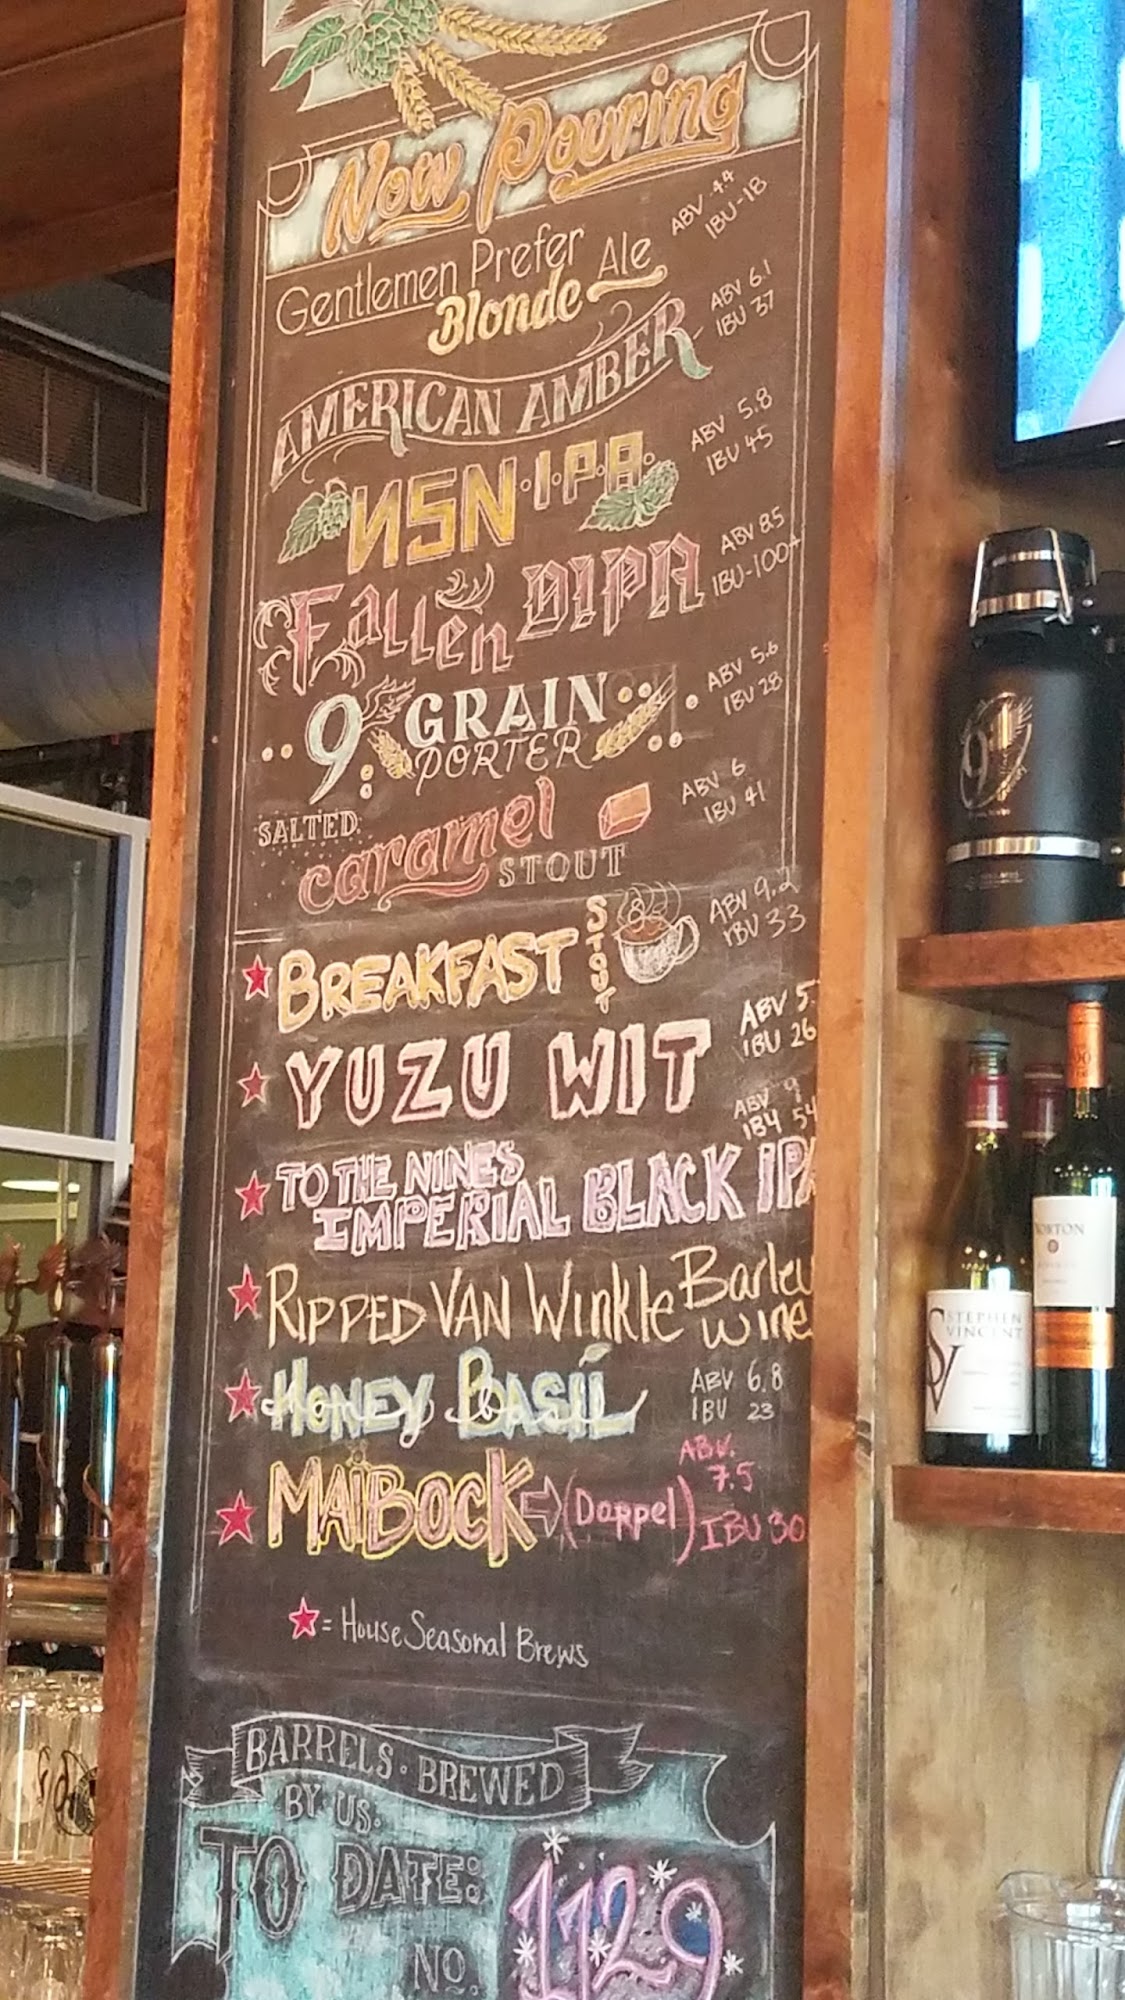 Now Pouring
Gentlemen Prefer
Blonde Ale
ABV 4.4
IBU-18
AMERICAN AMBER
ABV 6.1
IBU 37
NSN·I·P.A.
ABV 5.8
IBU 45
Fallen DIPA
ABV 8.5
IBU-100+
9 GRAIN
PORTER
ABV 5.6
IBU 28
SALTED
caramel
STOUT
ABV 6
IBU 41
BREAKFAST STOUT
ABV 9.2
IBU 33
YUZU WIT
ABV 5.
IBU 26
TO THE NINES
IMPERIAL BLACK IPA
ABV 9
IBU 54
RIPPED VAN Winkle Barley
Wine
HONEY BASIL
ABV 6.8
IBU 23
MAIBOCK (Doppel)
ABV.
7.5
IBU 30
= House Seasonal Brews
BARRELS · BREWED
BY US.
TO DATE:
NO. 1129
9
STEPHEN
VINCENT
SV